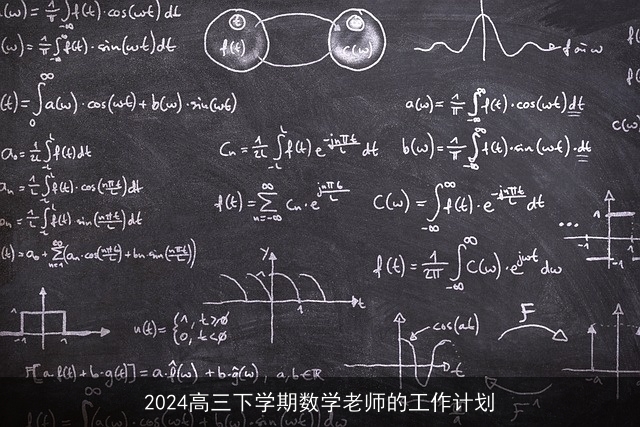 (ω) = 1/π ∫ f(t)·cos(ωt) dt
(ω) = 1/π ∫ f(t)·sin(ωt) dt
t f(t) ω C(ω)
f sin ω
(t) = ∫₀^∞ a(ω)·cos(ωt) + b(ω)·sin(ωt)
a(ω) = 1/π ∫_{-∞}^{∞} f(t)·cos(ωt) dt
a₀ = 1/2L ∫_{-L}^{L} f(t) dt
Cₙ = 1/2L ∫_{-L}^{L} f(t) e^{-jnπt/L} dt
b(ω) = 1/π ∫_{-∞}^{∞} f(t)·sin(ωt)·dt
C(ω
aₙ = 1/L ∫_{-L}^{L} f(t)·cos(nπt/L) dt
f(t) = Σ_{n=-∞}^{∞} Cₙ·e^{jnπt/L}
C(ω) = ∫_{-∞}^{∞} f(t)·e^{-jnπt/L} dt
bₙ = 1/L ∫_{-L}^{L} f(t)·sin(nπt/L) dt
(t) = a₀ + Σ_{n=1}^{∞} (aₙ·cos(nπt/L) + bₙ·sin(nπt/L))
f(t) = 1/2π ∫_{-∞}^{∞} C(ω)·e^{jωt} dω
y 1 1 t
u(t) = { 1, t≥0
0, t<0
cos(at)
t
F
-a
F[a·f(t) + b·g(t)] = a·f̂(ω) + b·ĝ(ω), a,b∈ℝ
F
2024高三下学期数学老师的工作计划